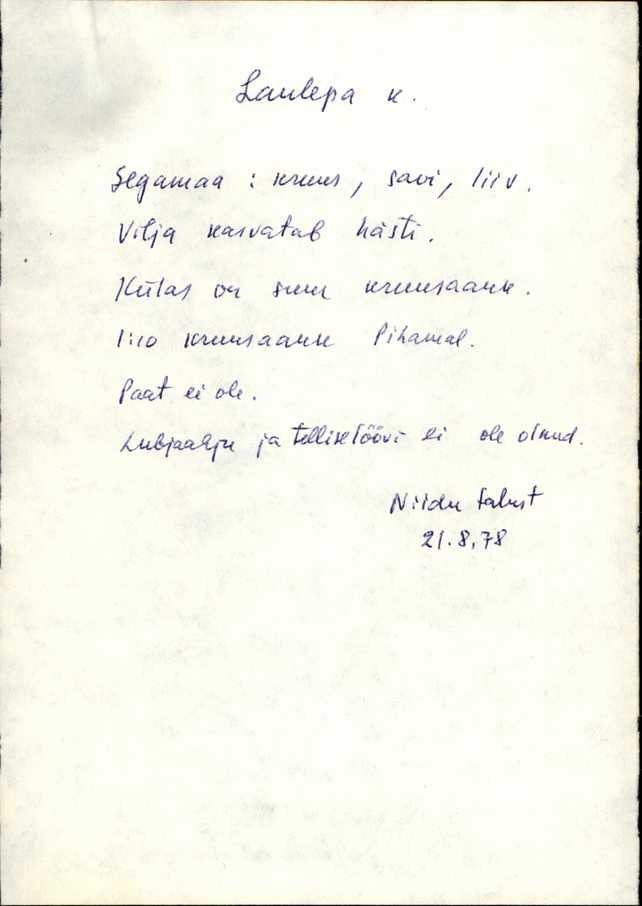 Laulepa k.
Segamaa : kruus, savi, liiv.
Vilja kasvatab hästi.
Külas on suur kruusaauk.
1:10 kruusaauk Pihamal.
Paat ei ole.
Lubjaahju ja telliselöövi ei ole olnud.
Niidu talust
21.8.78